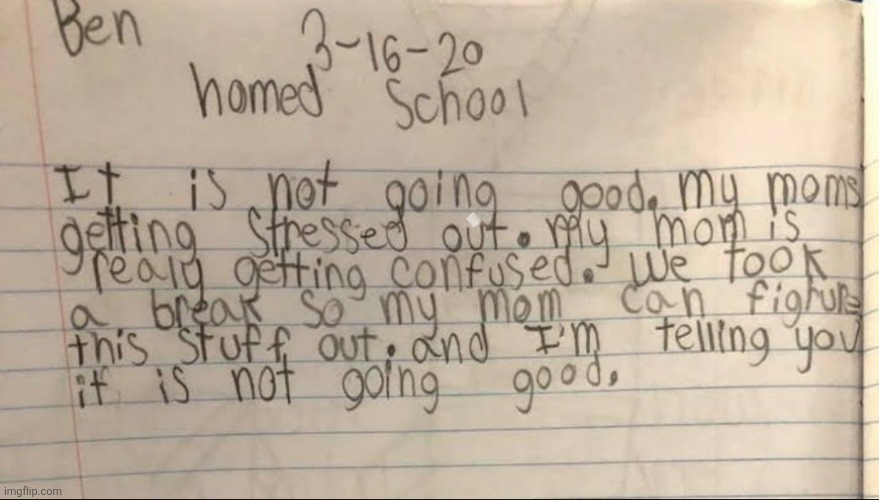 Ben
3-16-20
homed School
It is not going good. my moms
getting stressed out. my mom is
realy getting confused. we took
a break so my mom can fighure
this stuff out. and I'm telling you
it is not going good.
imgflip.com